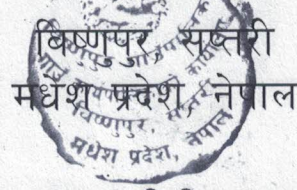 बिष्णुपुर सप्तरी
मधेश प्रदेश, नेपाल
बिष्णुपुर, सप्तरी
मधेश प्रदेश, नेपाल